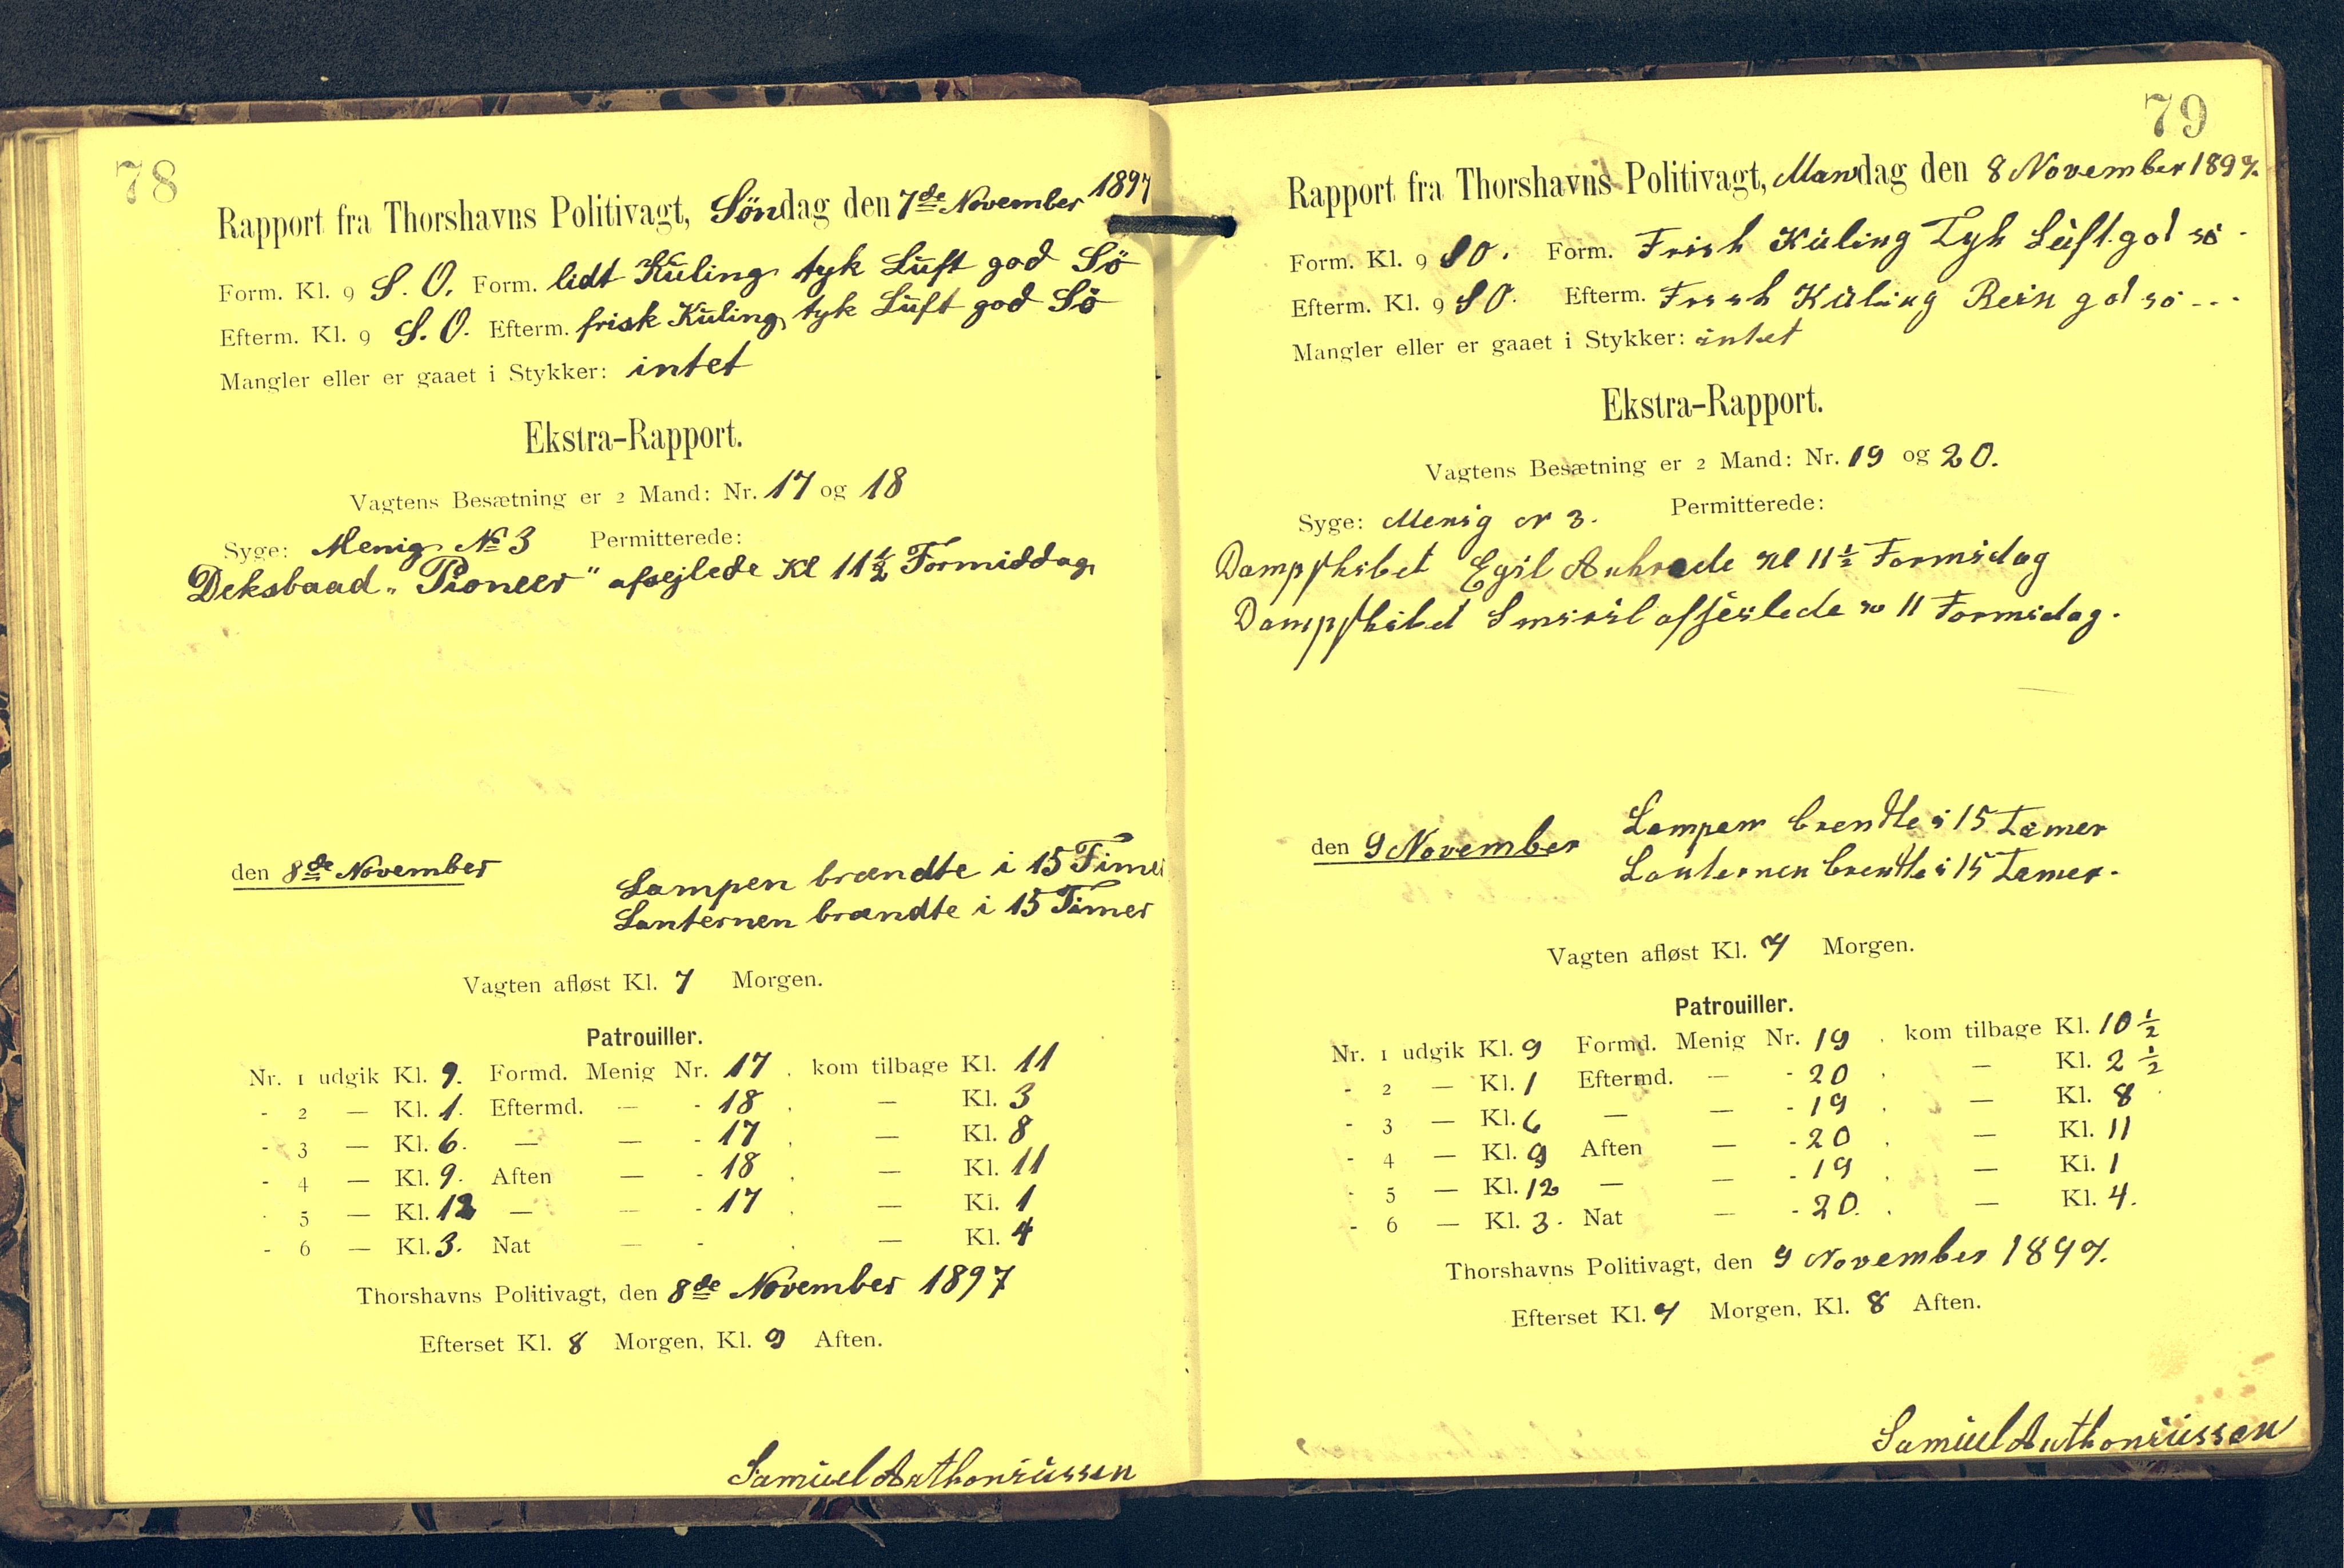 78
Rapport fra Thorshavns Politivagt, Söndag den 7de November 1897
Form. Kl. 9 S. O. Form. lidt Kuling tyk Luft god Sö
Efterm. Kl. 9 S. O. Efterm. frisk Kuling tyk Luft god Sö
Mangler eller er gaaet i Stykker: intet
Ekstra-Rapport.
Vagtens Besætning er 2 Mand: Nr. 17 og 18
Syge: Menig No 3 Permitterede:
Deksbaad „Pioneer" afsejlede Kl 11 1/2 Formiddag
den 8de November
Lampen brændte i 15 Timer
Lanternen brændte i 15 Timer
Vagten afløst Kl. 7 Morgen.
Patrouiller.
Nr. 1 udgik Kl. 9. Formd. Menig Nr. 17 . kom tilbage Kl. 11
- 2 — Kl. 1. Eftermd. — - 18 . — Kl. 3
- 3 — Kl. 6. — — - 17 . — Kl. 8
- 4 — Kl. 9. Aften — - 18 . — Kl. 11
- 5 — Kl. 12 — — - 17 . — Kl. 1
- 6 — Kl. 3. Nat — - . — Kl. 4
Thorshavns Politivagt, den 8de November 1897
Efterset Kl. 8 Morgen, Kl. 9 Aften.
Samuel Anthoniussen
79
Rapport fra Thorshavns Politivagt, Mandag den 8 November 1897.
Form. Kl. 9 SO. Form. Frish Kuling Tyk Luft god sö.
Efterm. Kl. 9 SO. Efterm. Frish Kuling Rein god so ...
Mangler eller er gaaet i Stykker: intet
Ekstra-Rapport.
Vagtens Besætning er 2 Mand: Nr. 19 og 20.
Syge: Menig nr 3. Permitterede:
Dampskibet Egil Ankrede Kl 11 1/2 Formidag
Dampskibet Smiril afseilede 11 Formidag.
den 9 November
Lampen brendte i 15 Tamer
Lanternen brendte i 15 Tamer.
Vagten afløst Kl. 7 Morgen.
Patrouiller.
Nr. 1 udgik Kl. 9 Formd. Menig Nr. 19 . kom tilbage Kl. 10 1/2
- 2 — Kl. 1 Eftermd. — - 20 . — Kl. 2 1/2
- 3 — Kl. 6 — — - 19 . — Kl. 8
- 4 — Kl. 9 Aften — - 20 . — Kl. 11
- 5 — Kl. 12 — — - 19 . — Kl. 1
- 6 — Kl. 3. Nat — - 20. . — Kl. 4.
Thorshavns Politivagt, den 9 November 1897.
Efterset Kl. 7 Morgen, Kl. 8 Aften.
Samuel Anthoniussen